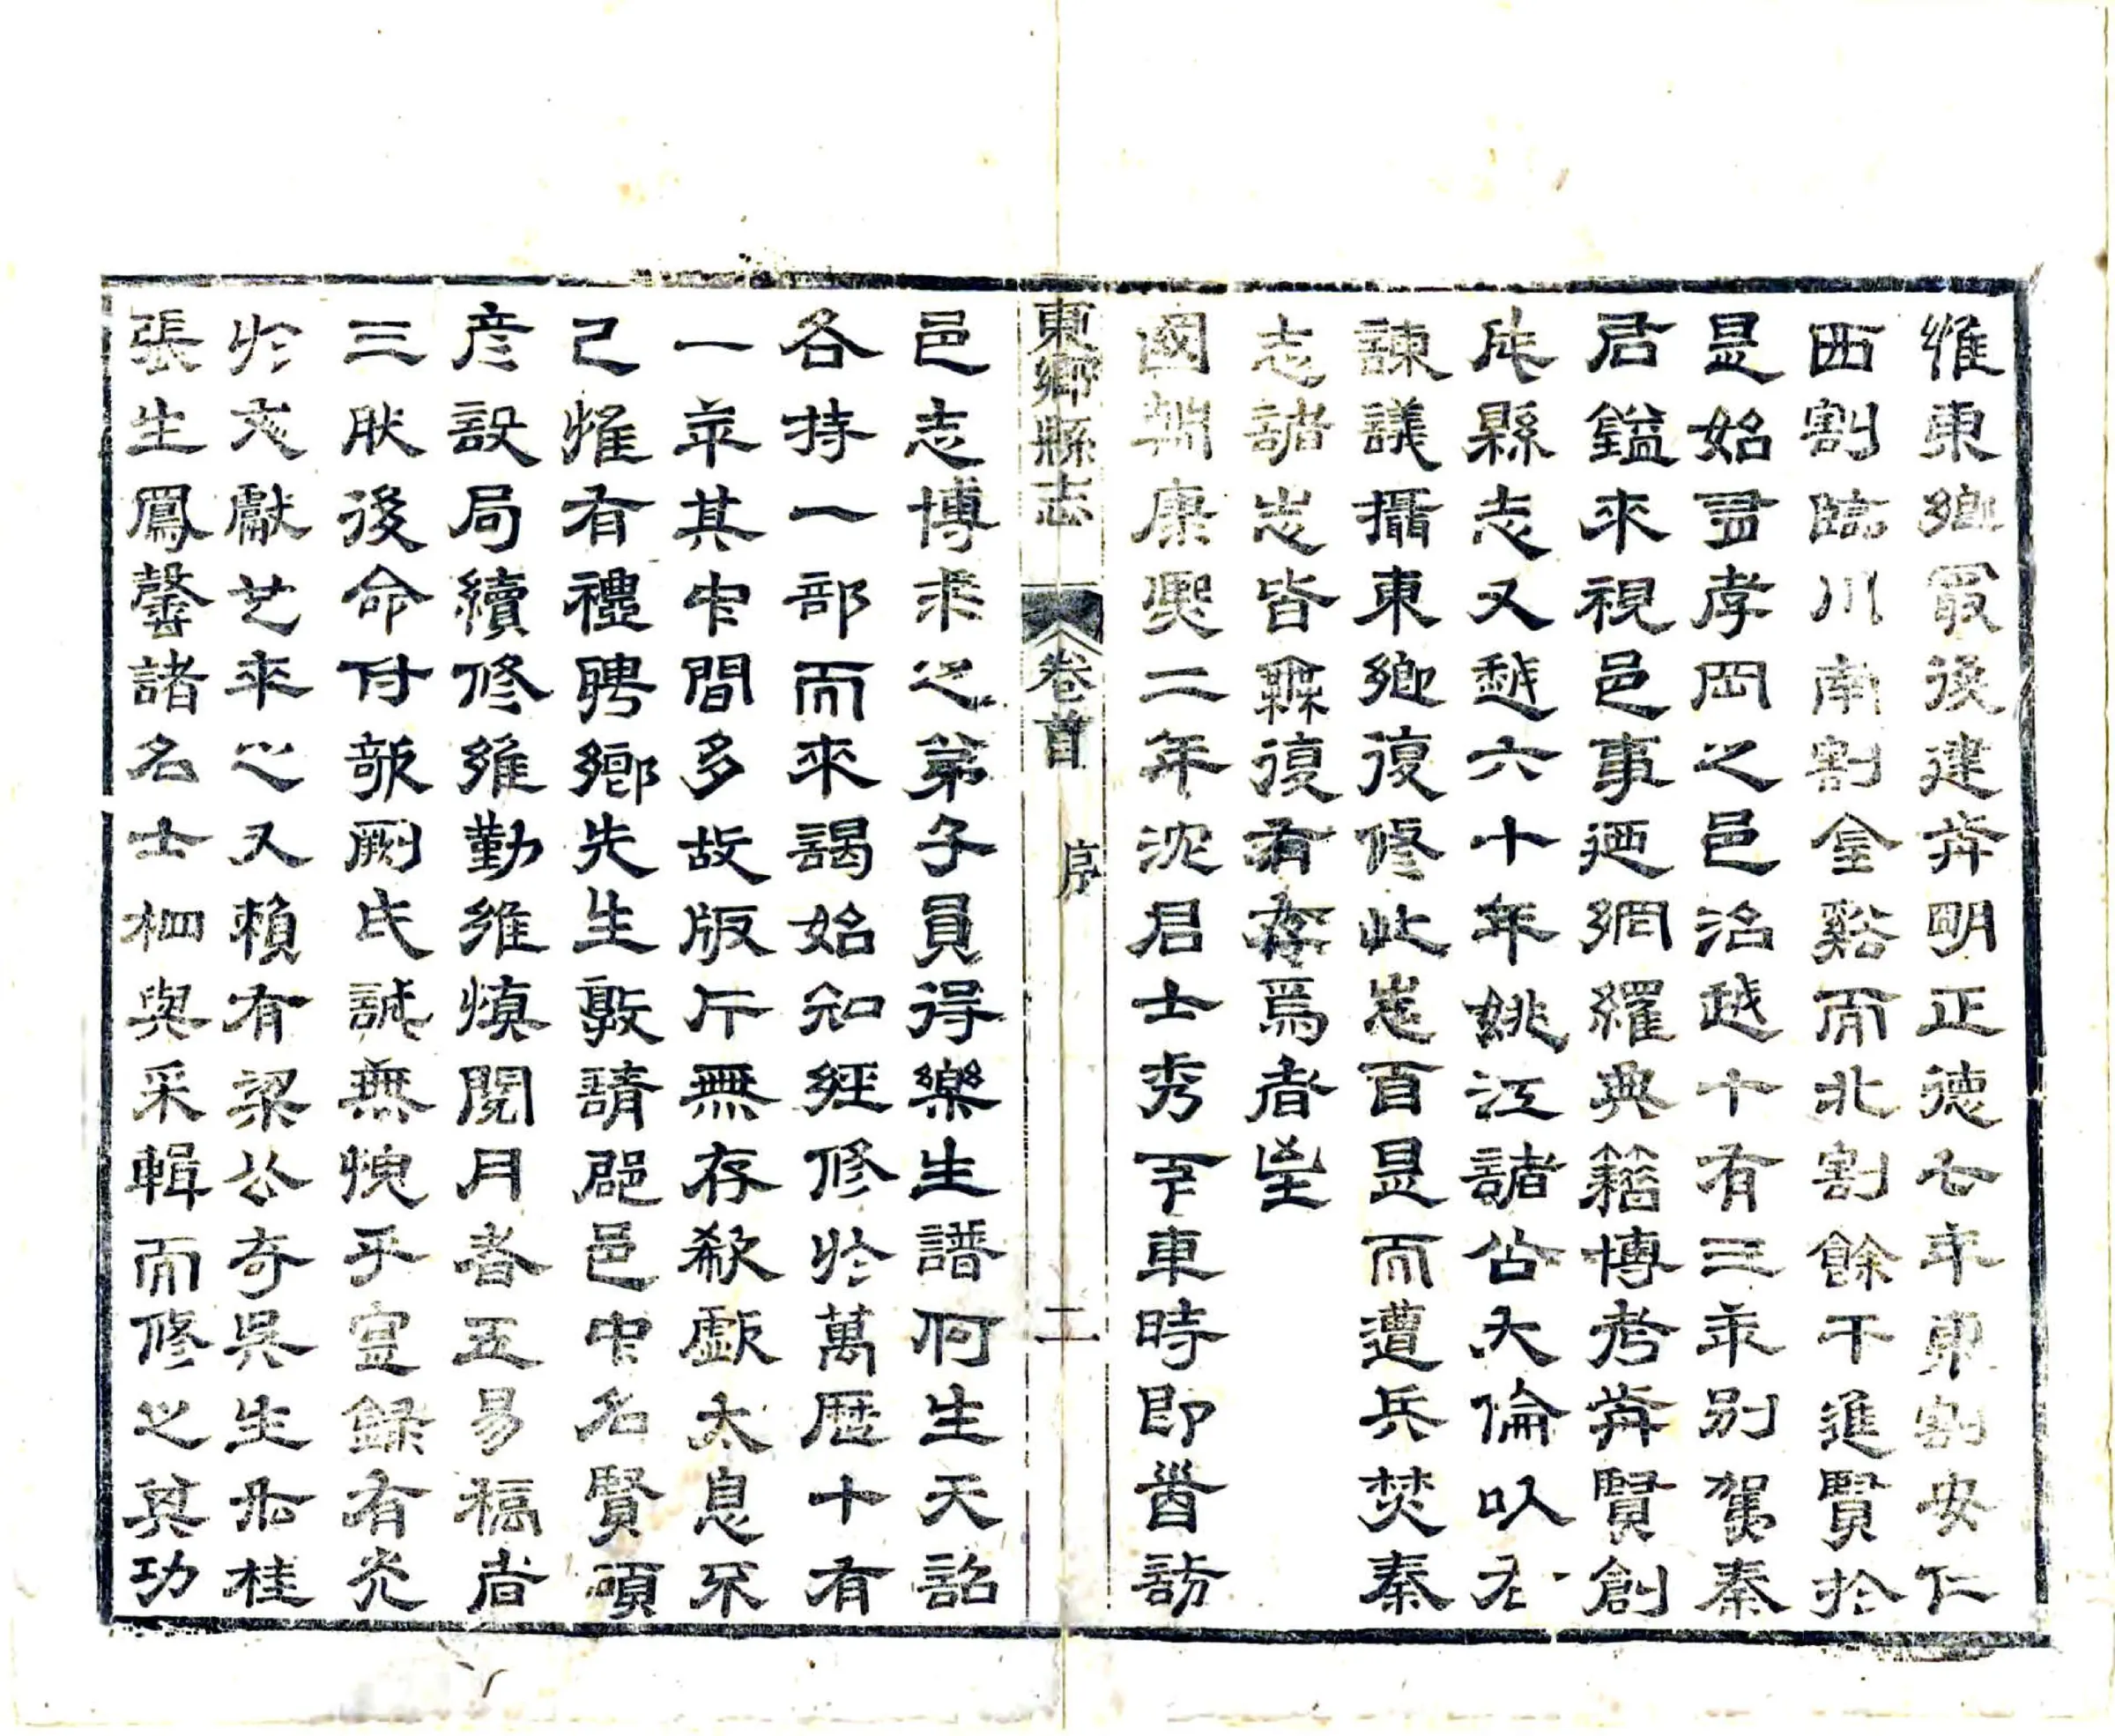 維東鄉最後建葬明正德七年東割安仁
西割臨川南割金谿而北割餘干進賢於
是始置孝岡之邑治越十有三年別駕秦
君鎰來視邑事迺網羅典籍博考葬賢創
成縣志又越六十年姚江諸公大倫以左
諫議攝東鄉復修此志百是而遭兵焚秦
志諸志皆無復有存焉者望
國朝康熙二年沈君士秀下車時即首訪
東鄉縣志 卷首 序 二
邑志博求之第子員得樂生譜何生天詔
各持一部而來謁始知經修於萬曆十有
一年其中間多故版片無存欷歔太息不
已惟有禮聘鄉先生敦請闔邑中名賢碩
彥設局續修維勤維慎閱月者五易稿者
三狀後命付剞劂氏誠無愧乎寔錄有光
於文獻者來也又賴有梁公奇吳生丹桂
張生鳳馨諸名士相與采輯而修之其功